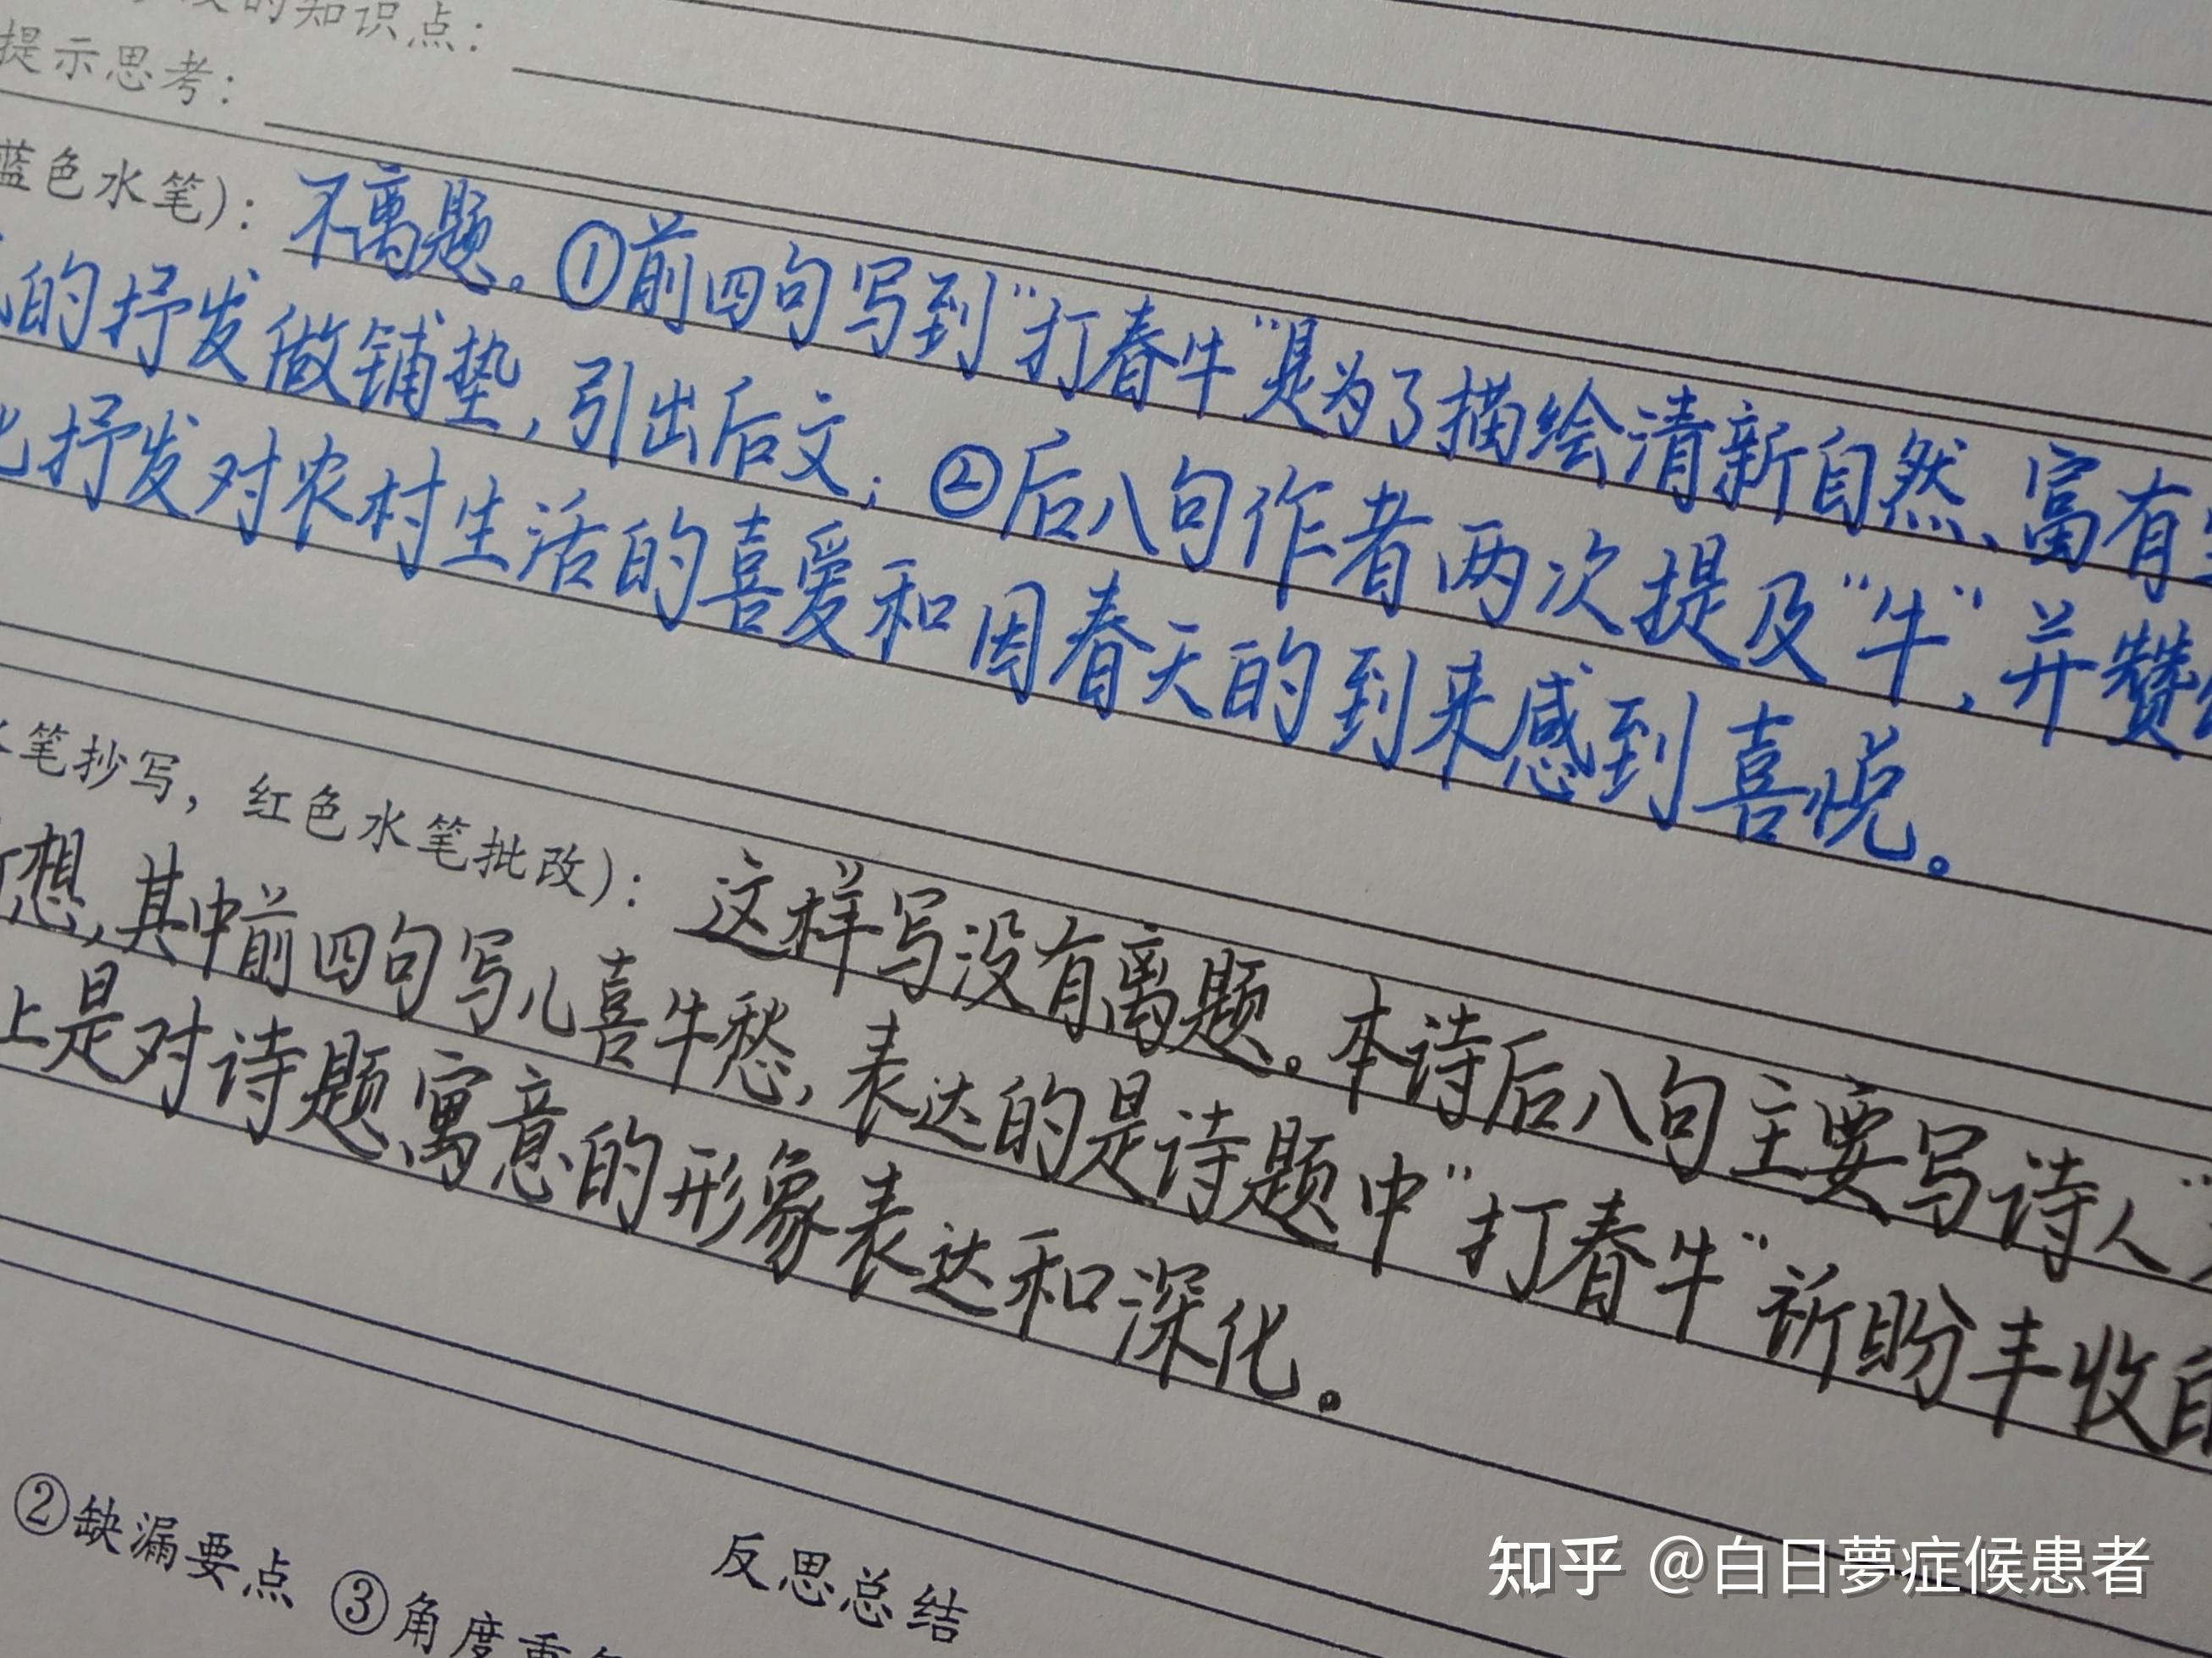 的知识点：
提示思考：
蓝色水笔）：不离题。①前四句写到“打春牛”是为了描绘清新自然、富有
的抒发做铺垫，引出后文；②后八句作者两次提及“牛”，并赞
抒发对农村生活的喜爱和因春天的到来感到喜悦。
笔抄写，红色水笔批改）：这样写没有离题。本诗后八句主要写诗人“
想，其中前四句写儿喜牛愁，表达的是诗题中“打春牛”祈盼丰收的
上是对诗题寓意的形象表达和深化。
②缺漏要点 ③角度重
反思总结
知乎 @白日夢症候患者